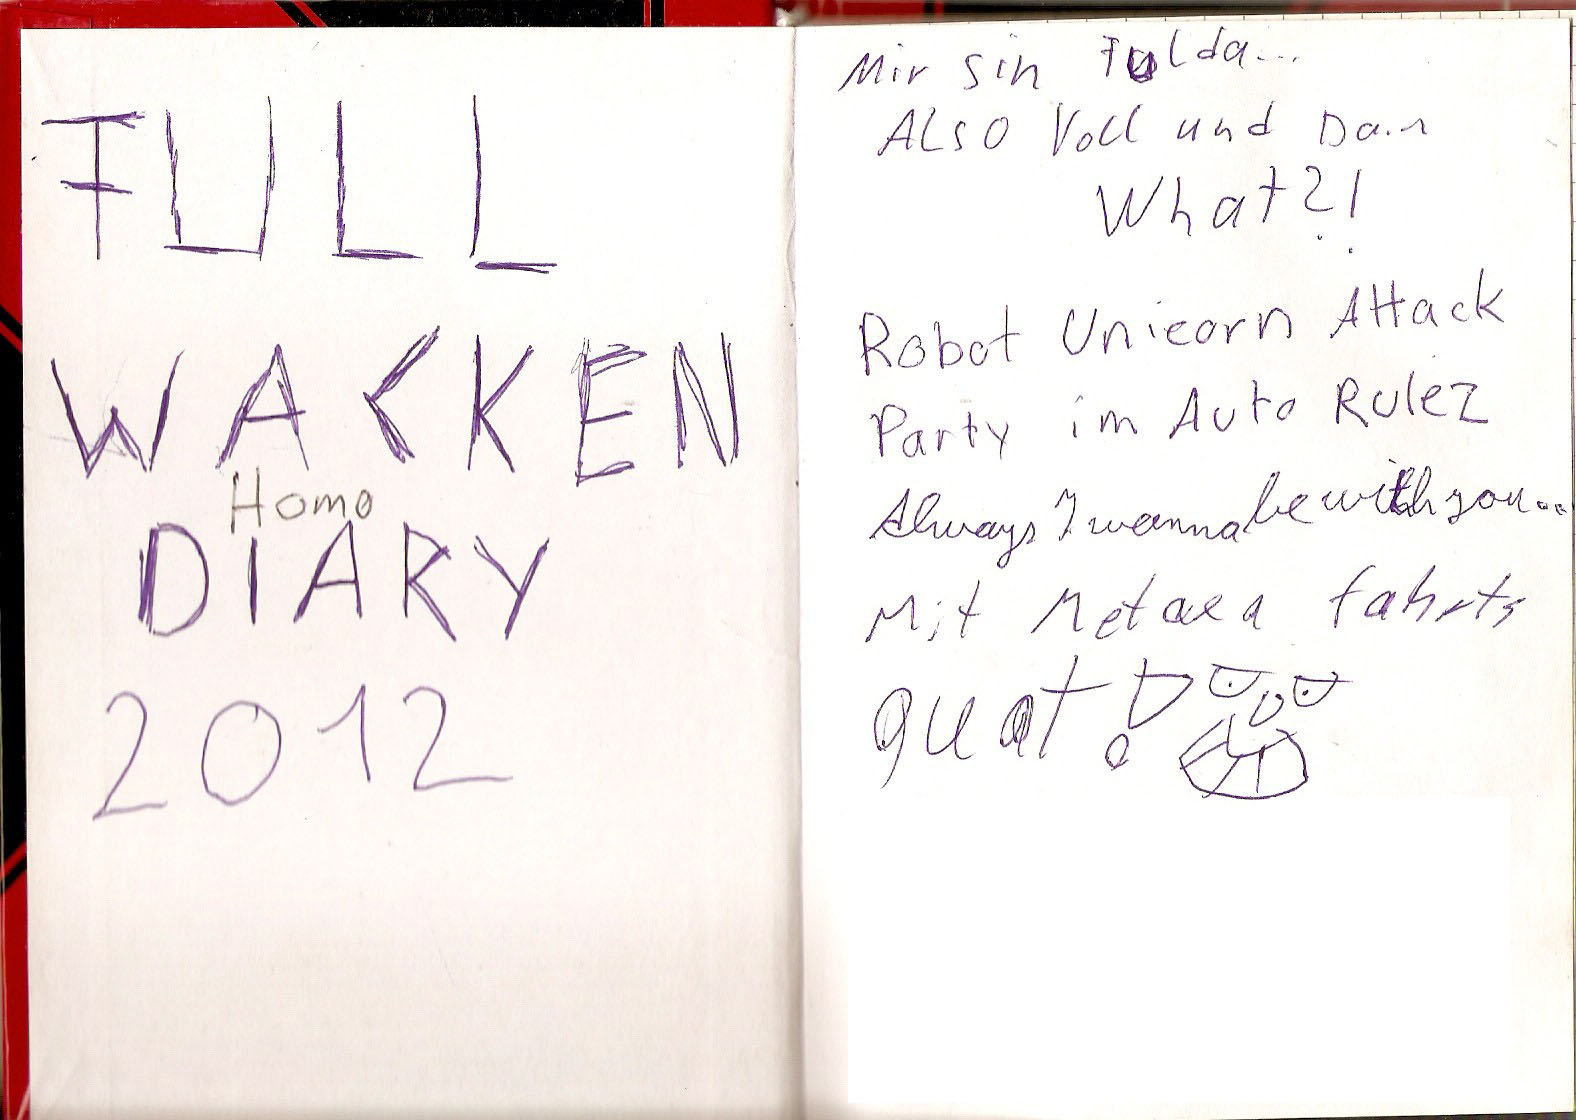 FULL
WACKEN
Homo
DIARY
2012
Mir sin Fulda...
ALSO Voll und Da..
What?!
Robot Unicorn Attack
Party im Auto RuleZ
Always I wanna be with you...
Mit Metaxa fahrts
guat!